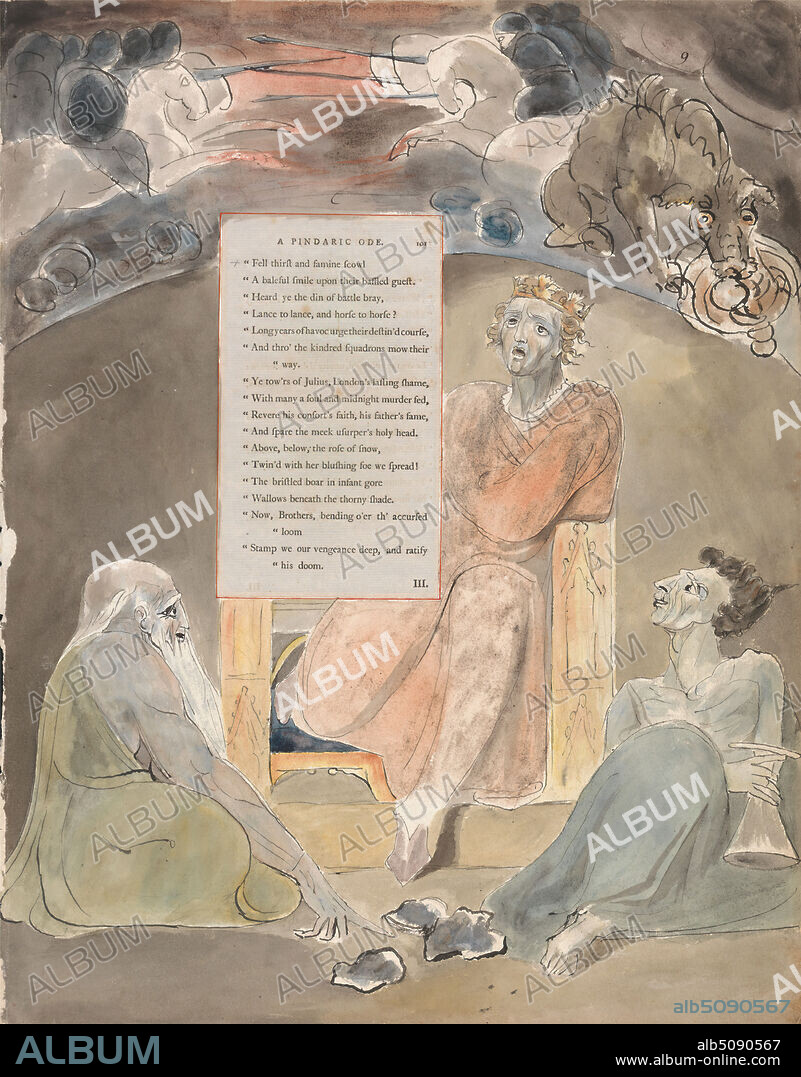 9
A PINDARIC ODE. 101
“ Fell thirſt and famine ſcowl
“ A baleful ſmile upon their baffled gueſt.
“ Heard ye the din of battle bray,
“ Lance to lance, and horſe to horſe ?
“ Long years of havoc urge their deſtin’d courſe,
“ And thro’ the kindred ſquadrons mow their
“ way.
“ Ye tow’rs of Julius, London’s laſting ſhame,
“ With many a foul and midnight murder fed,
“ Revere his conſort’s faith, his father’s fame,
“ And ſpare the meek uſurper’s holy head.
“ Above, below, the roſe of ſnow,
“ Twin’d with her bluſhing foe we ſpread !
“ The briſtled boar in infant gore
“ Wallows beneath the thorny ſhade.
“ Now, Brothers, bending o’er th’ accurſed
“ loom
“ Stamp we our vengeance deep, and ratify
“ his doom.
III.
alb5090567
ALBUM
alb5090567
www.album-online.com